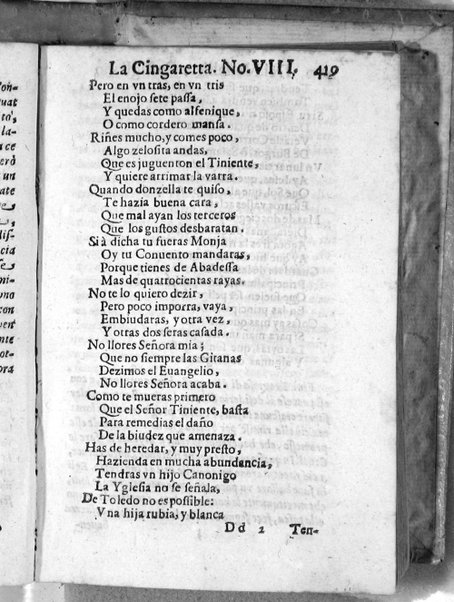 La Cingaretta. No. VIII. 419
Pero en vn tras, en vn tris
El enojo sete passa,
Y quedas como alfenique,
O como cordero mansa.
Riñes mucho, y comes poco,
Algo zelosita andas,
Que es juguenton el Tiniente,
Y quiere arrimar la varra.
Quando donzella te quiso,
Te hazia buena cara,
Que mal ayan los terceros
Que los gustos desbaratan.
Si à dicha tu fueras Monja
Oy tu Conuento mandaras,
Porque tienes de Abadessa
Mas de quatrocientas rayas.
No te lo quiero dezir,
Pero poco imporra, vaya,
Embiudaras, y otra vez,
Y otras dos seras casada.
No llores Señora mia;
Que no siempre las Gitanas
Dezimos el Euangelio,
No llores Señora acaba.
Como te mueras primero
Que el Señor Tiniente, basta
Para remedias el daño
De la biudez que amenaza.
Has de heredar, y muy presto,
Hazienda en mucha abundancia,
Tendras vn hijo Canonigo
La Yglesia no se señala,
De Toledo no es possible:
Vna hija rubia, y blanca
Dd 2 Ten-